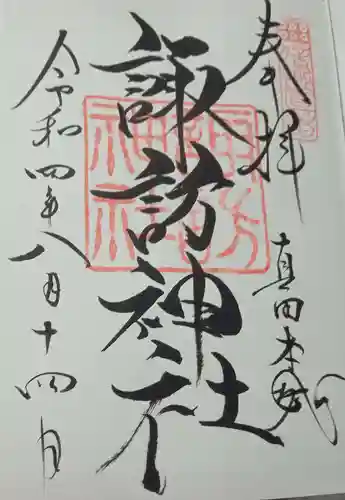 奉拝
真田本城
諏訪神社
令和四年八月十四日